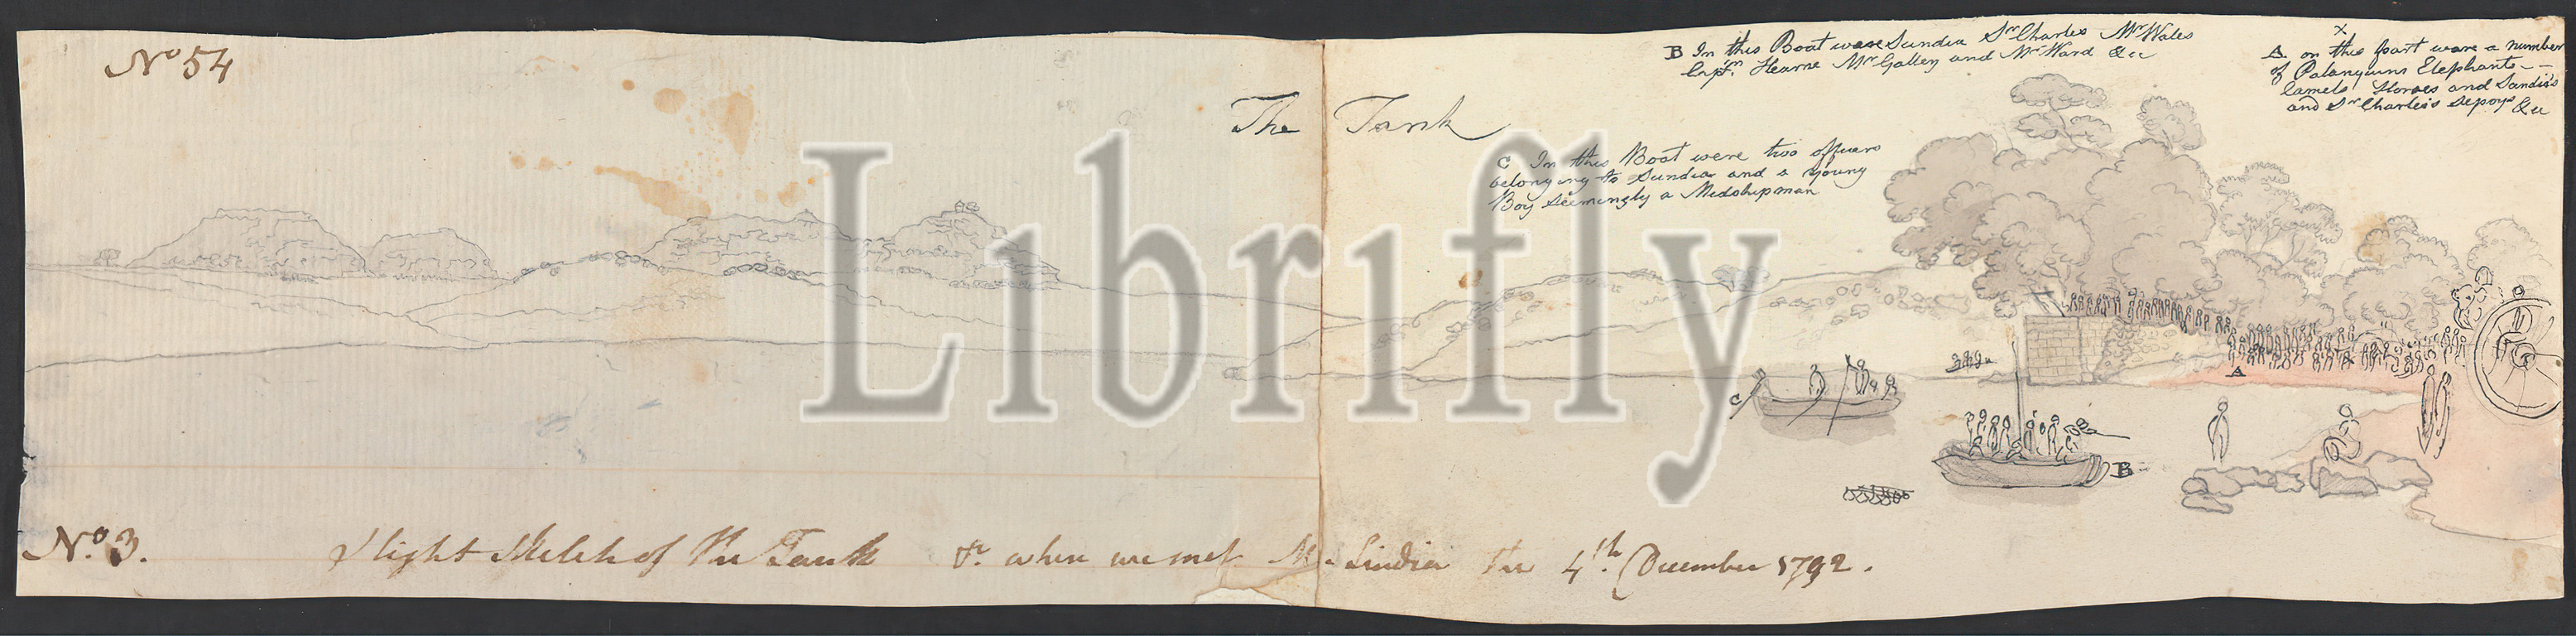 No 54
B In this Boat ware Sundia Sr Charles Mr Wales
Captn Hearne Mr Galley and Mr Ward &c
X
A on this part ware a number
of Palanquins Elephants
Camels Horses and Sundia's
and Sr Charles's Sepoys &c
The Tank
C In this Boat were two officers
belonging to Sundia and a young
Boy seemingly a Midshipman
Librifly
A
C
B
No 3. Slight Sketch of the Tank &c when we met M. Sindia the 4th December 1792.